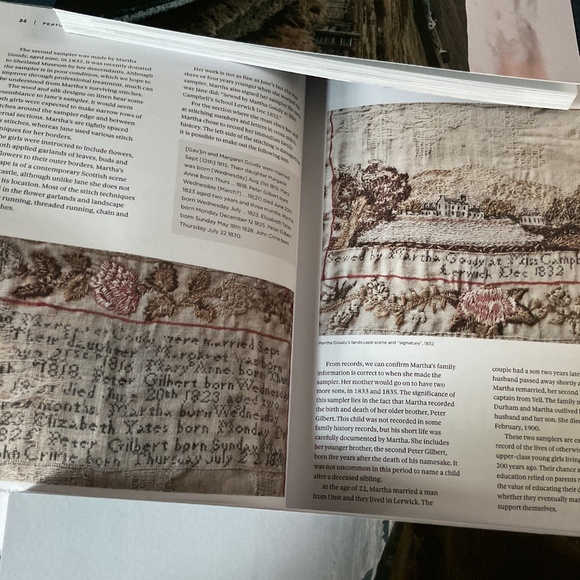 24 | FEAT
The second sampler was made by Martha
Goudy, aged nine, in 1832. It was recently donated
to Shetland Museum by her descendants. Although
the sampler is in poor condition, which we hope to
improve through professional treatment, much can
be understood from Martha's surviving stitches.
The wool and silk designs on linen bear some
resemblance to Jane's sampler. It would seem
both girls were expected to make narrow rows of
stitches around the sampler edge and between
internal sections. Martha's are tightly spaced
stitches, whereas Jane used various stitch
techniques for her borders.
The girls were instructed to include flowers,
both applied garlands of leaves, buds and
flowers to their outer borders. Martha's
landscape is of a contemporary Scottish scene
castle, although unlike Jane she does not
its location. Most of the stitch techniques
in the flower garlands and landscape
running, threaded running, chain and
Her work is not as fine as Jane's but she was
three or four years younger when she made her
sampler. Martha also signed her sampler the same
way Jane did, "Sewed by Martha Goudy at Miss
Campbell's School Lerwick Dec 1832."
For the section where most girls would have sewn
stitching numbers and letters
Martha cleverly recorded her immediate family
history. The left side of the stitching is
it is possible to make out the following text:
[Gav]in and Margaret Goudy were married
Sept [12th] 1815. Their daughter Margaret
was born [Wednesday] Aug 21st 1816. Mary
Anne born Thurs ... 1818. Peter Gilbert born
Wednesday [March?] ... [182]1 died June 20th
1823 aged two years and three months. Martha
born Wednesday July ... 1823. Elizabeth Yates
born Monday December 12 1825. Peter Gilbert
born Sunday May 18th 1828. John Cririe born
Thursday July 22 1830.
Goudy were married Sept
Their daughter Margaret was born
1816. Mary Anne born Thur
1818. Peter Gilbert born Wednesd
June 20th 1823 aged
months. Martha born Wednesday
Elizabeth Yates born Monday D
Peter Gilbert born Sunday M
John Cririe born Thursday July 22 18
Sewed by Martha Goudy at Miss Campb
Lerwick Dec 1832
Martha Goudy's landscape scene and "signature", 1832
From records, we can confirm Martha's family
information is correct to when she made the
sampler. Her mother would go on to have two
more sons, in 1833 and 1835. The significance of
this sampler lies in the fact that Martha recorded
the birth and death of her older brother, Peter
Gilbert. This child was not recorded in some
family history records, but his short life was
carefully documented by Martha. She includes
her younger brother, the second Peter Gilbert,
born five years after the death of his namesake. It
was not uncommon in this period to name a child
after a deceased sibling.
At the age of 22, Martha married a man
from Unst and they lived in Lerwick. The
couple had a son two years late
husband passed away shortly a
Martha remarried, her second
captain from Yell. The family
Durham and Martha outlived
husband and her son. She die
February, 1900.
These two samplers are e
record of the lives of otherwi
upper-class young girls living
200 years ago. Their chance
education relied on parents
the value of educating their
whether they eventually mar
support themselves.